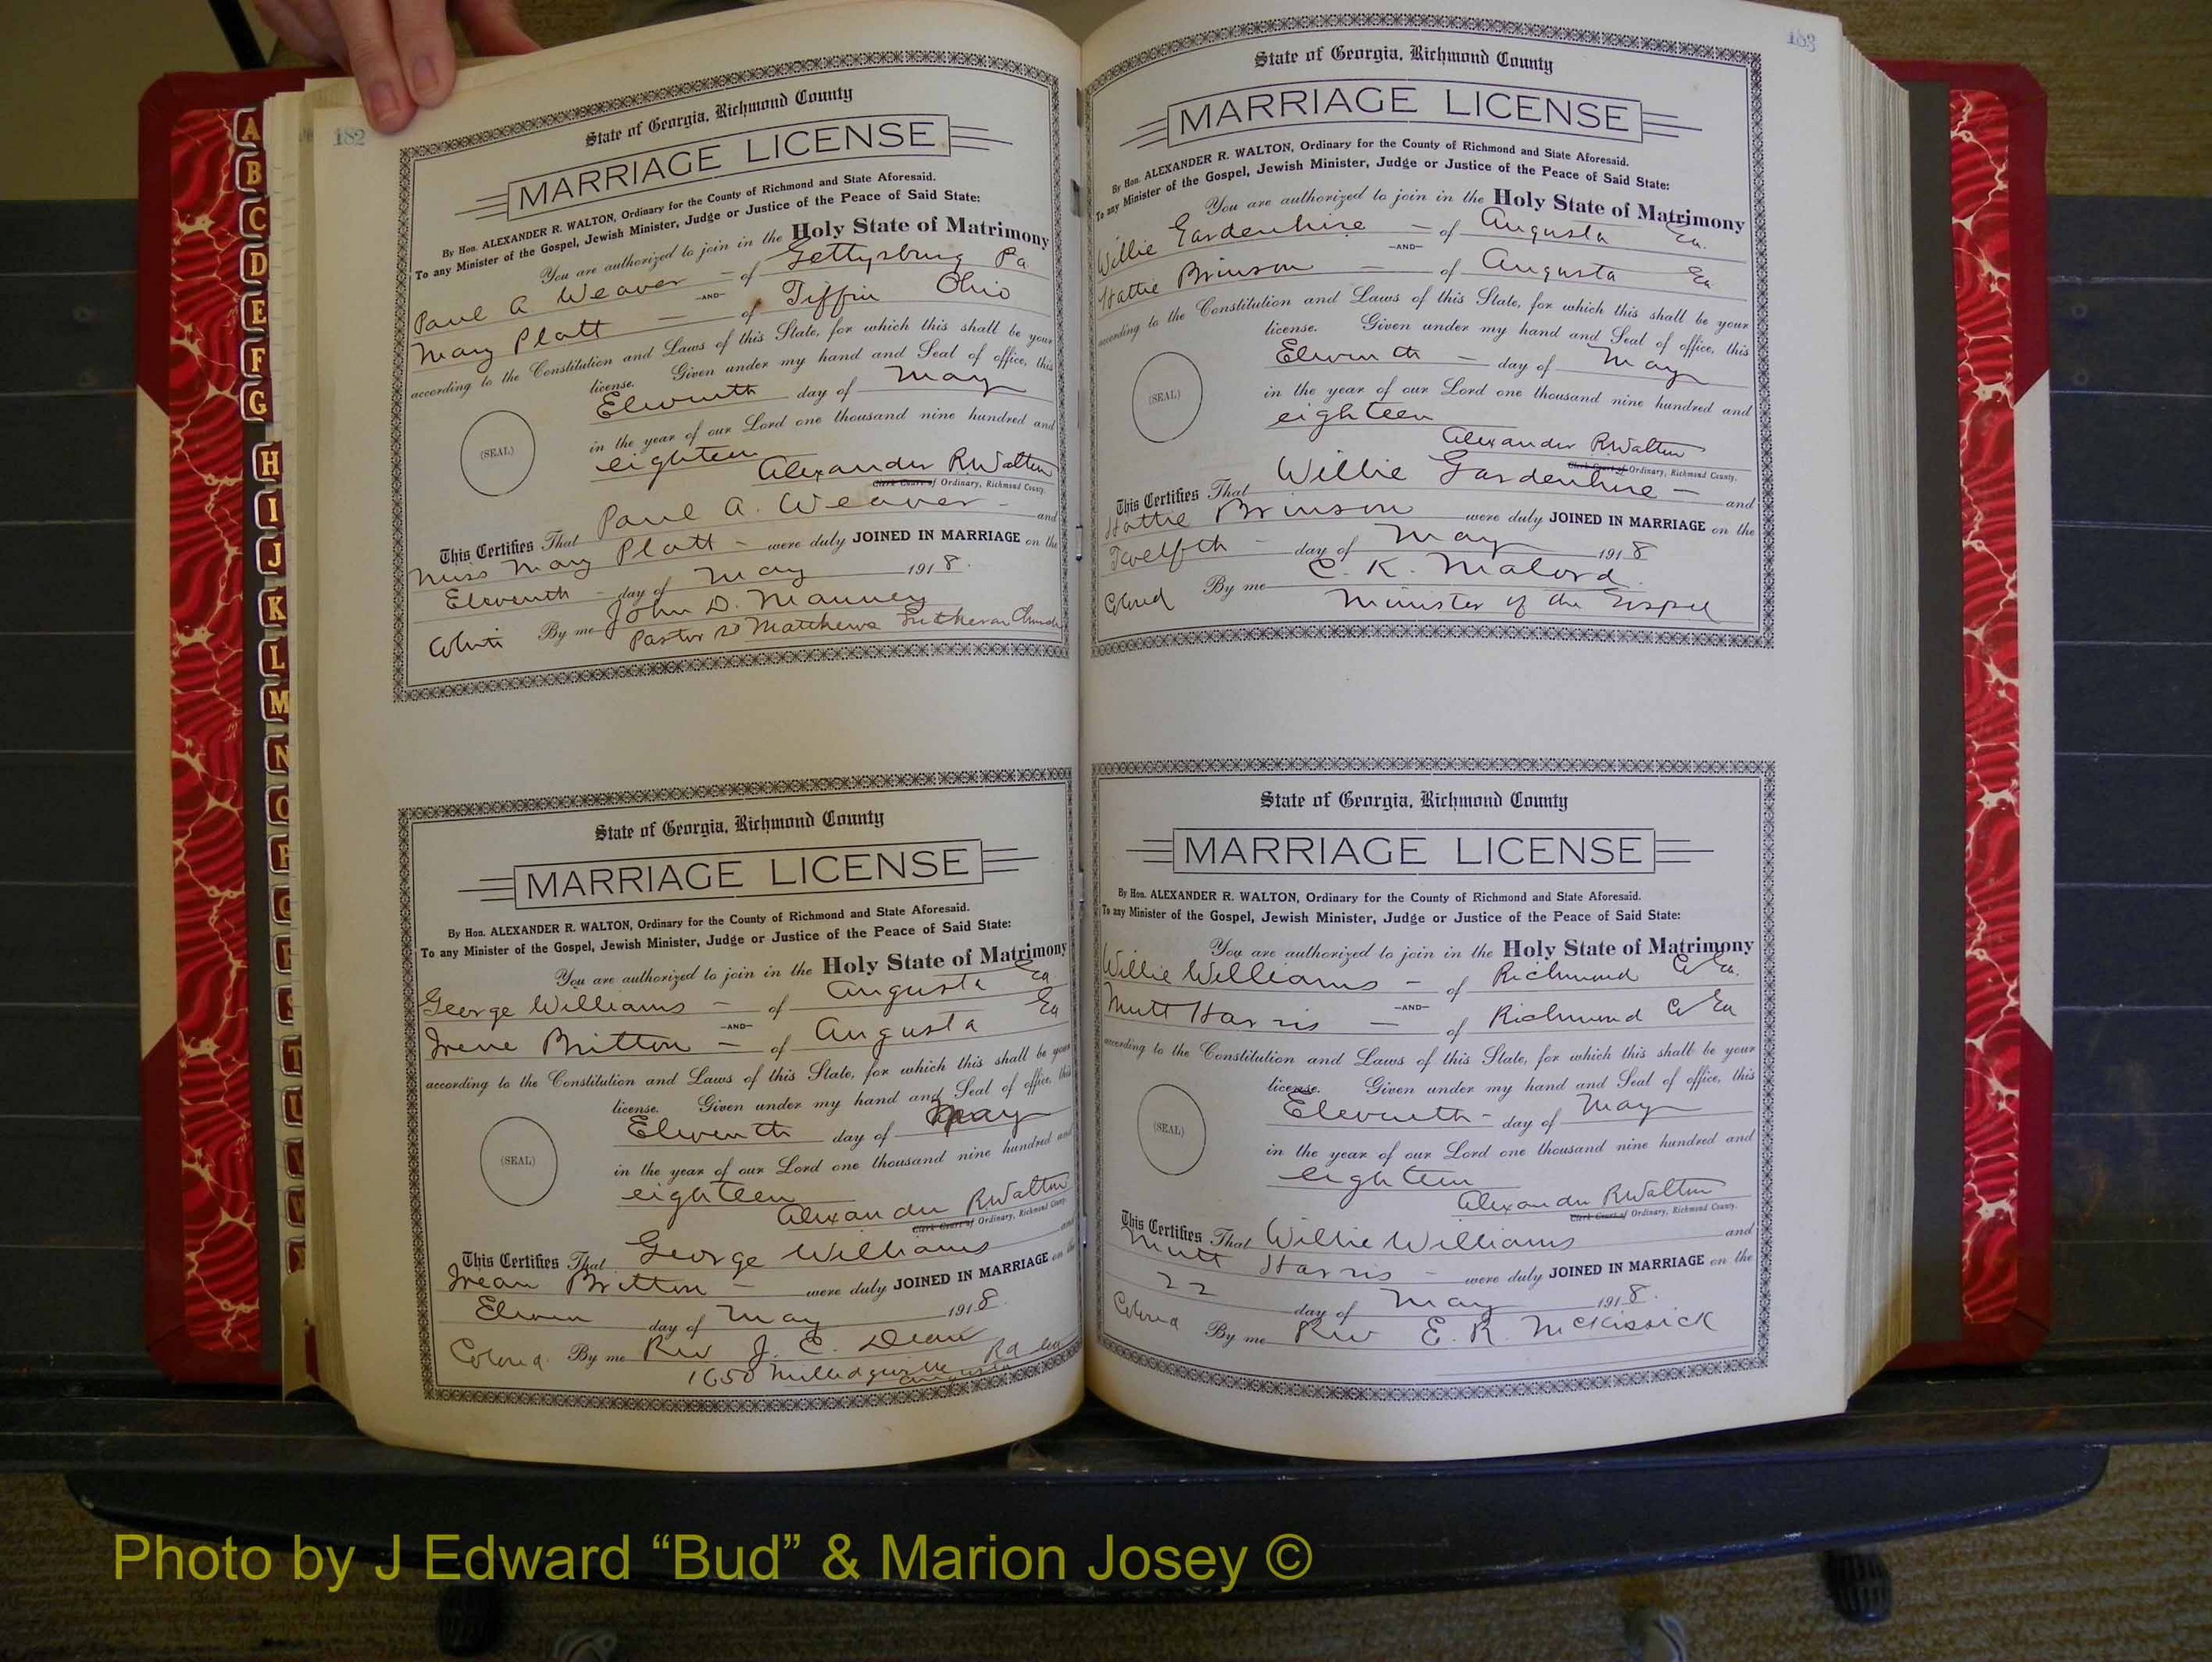 182
State of Georgia, Richmond County
MARRIAGE LICENSE
By Hon. ALEXANDER R. WALTON, Ordinary for the County of Richmond and State Aforesaid.
To any Minister of the Gospel, Jewish Minister, Judge or Justice of the Peace of Said State:
You are authorized to join in the Holy State of Matrimony
Paul A Weaver - of Gettysburg Pa
-AND-
Mary Platt - of Tiffin Ohio
according to the Constitution and Laws of this State, for which this shall be your
license. Given under my hand and Seal of office, this
Eleventh day of May
(SEAL)
in the year of our Lord one thousand nine hundred and
eighteen
Alexander R Walton
Clerk Court of Ordinary, Richmond County.
This Certifies That Paul A. Weaver - and
Miss Mary Platt - were duly JOINED IN MARRIAGE on the
Eleventh - day of May 1918.
White By me John D. Mauney
Pastor St Matthews Lutheran Church
State of Georgia, Richmond County
MARRIAGE LICENSE
By Hon. ALEXANDER R. WALTON, Ordinary for the County of Richmond and State Aforesaid.
To any Minister of the Gospel, Jewish Minister, Judge or Justice of the Peace of Said State:
You are authorized to join in the Holy State of Matrimony
George Williams - of Augusta Ga
-AND-
Irene Britton - of Augusta Ga
according to the Constitution and Laws of this State, for which this shall be your
license. Given under my hand and Seal of office, this
Eleventh day of May
(SEAL)
in the year of our Lord one thousand nine hundred and
eighteen
Alexander R Walton
Clerk Court of Ordinary, Richmond County.
This Certifies That George Williams and
Irean Britton - were duly JOINED IN MARRIAGE on the
Eleven day of May 1918.
Colored By me Rev J. C. Dean
1650 Milledgeville Rd
Augusta
183
State of Georgia, Richmond County
MARRIAGE LICENSE
By Hon. ALEXANDER R. WALTON, Ordinary for the County of Richmond and State Aforesaid.
To any Minister of the Gospel, Jewish Minister, Judge or Justice of the Peace of Said State:
You are authorized to join in the Holy State of Matrimony
Willie Gardenhire - of Augusta Ga.
-AND-
Hattie Brinson - of Augusta Ga
according to the Constitution and Laws of this State, for which this shall be your
license. Given under my hand and Seal of office, this
Eleventh - day of May
(SEAL)
in the year of our Lord one thousand nine hundred and
eighteen
Alexander R Walton
Clerk Court of Ordinary, Richmond County.
This Certifies That Willie Gardenhire - and
Hattie Brinson were duly JOINED IN MARRIAGE on the
Twelfth - day of May 1918
Colored By me C. K. Malord.
Minister of the Gospel
State of Georgia, Richmond County
MARRIAGE LICENSE
By Hon. ALEXANDER R. WALTON, Ordinary for the County of Richmond and State Aforesaid.
To any Minister of the Gospel, Jewish Minister, Judge or Justice of the Peace of Said State:
You are authorized to join in the Holy State of Matrimony
Willie Williams - of Richmond Co Ga.
-AND-
Mutt Harris - of Richmond Co Ga
according to the Constitution and Laws of this State, for which this shall be your
license. Given under my hand and Seal of office, this
Eleventh - day of May
(SEAL)
in the year of our Lord one thousand nine hundred and
eighteen
Alexander R Walton
Clerk Court of Ordinary, Richmond County.
This Certifies That Willie Williams and
Mutt Harris - were duly JOINED IN MARRIAGE on the
22 day of May 1918.
Colored By me Rev E. R. McKissick
A
B
C
D
E
F
G
H
I
J
K
L
M
N
O
P
Q
R
S
T
U
V
W
Photo by J Edward “Bud” & Marion Josey ©